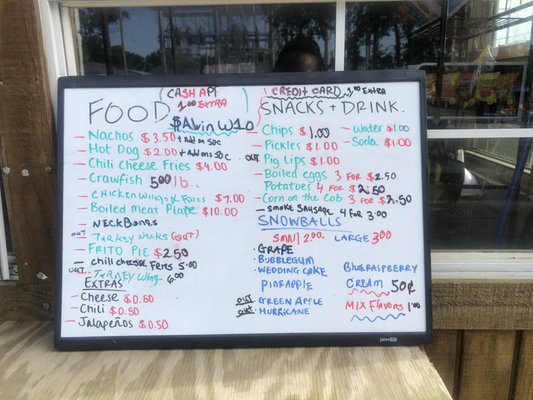 CASH APP
1.00 EXTRA
FOOD
$Alvin W10
- Nachos $3.50 + Add on 50C
- Hot Dog $2.00 + Add ons 50C
- Chili Cheese Fries $4.00
- Crawfish 5.00 lb.
- CHICKEN WINGS & Fries $7.00
- Boiled Meat Plate $10.00
- NECKBONES
OUT - TURKEY Necks (OUT)
- FRITO PIE $2.50
- CHILI CHEESE FRIES 5.00
OUT - TURKEY Wing 6.00
EXTRAS
- Cheese $0.50
- Chili $0.50
- Jalapeños $0.50
CREDIT CARD 1.00 EXTRA
SNACKS + DRINK.
- Chips $1.00
- Pickles $1.00
OUT - Pig Lips $1.00
- Water $1.00
- Soda $1.00
- Boiled eggs 3 FOR $2.50
- Potatoes 4 FOR $2.50
- Corn on the Cob 3 FOR $2.50
- SMOKE SAUSAGE 4 FOR 3.00
SNOWBALLS
SMALL 2.00, LARGE 3.00
· GRAPE
· BUBBLEGUM
· WEDDING CAKE
PINEAPPLE
OUT · GREEN APPLE
OUT · HURRICANE
BLUERASPBERRY
CREAM 50¢
MIX FLAVORS 1.00